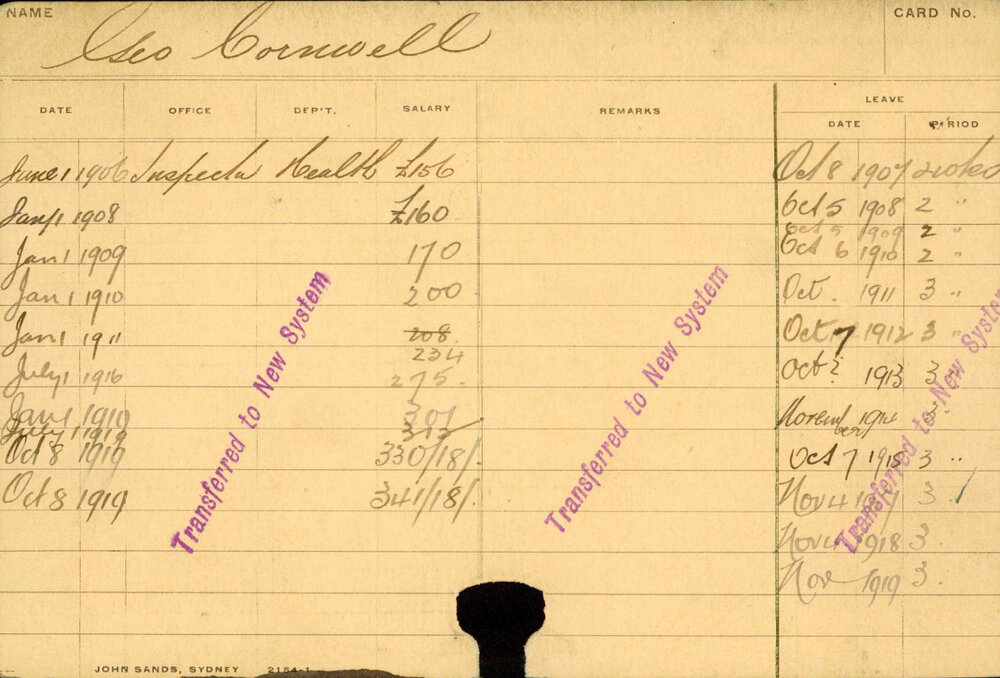 NAME Geo Cornwell CARD No.
DATE OFFICE DEP'T. SALARY REMARKS LEAVE
DATE PERIOD
June 1 1906 Inspector Health £156 Oct 8 1907 2 wks
Jany 1 1908 £160 Oct 5 1908 2 "
Oct 5 1909 2 "
Jan 1 1909 170 Oct 6 1910 2 "
Jan 1 1910 200 Oct. 1911 3 "
Jan 1 1911 208 Oct 7 1912 3 "
234
July 1 1916 275. Oct 1913 3
Jany 1 1919 301 November 1914 3
July 1 1919 313
Oct 8 1919 330/18/. Oct 7 1915 3 "
Oct 8 1919 341/18/. Nov 4 1917 3
Nov 4 1918 3
Nov 1919 3.
Transferred to New System
Transferred to New System
Transferred to New System
JOHN SANDS, SYDNEY 2154-1